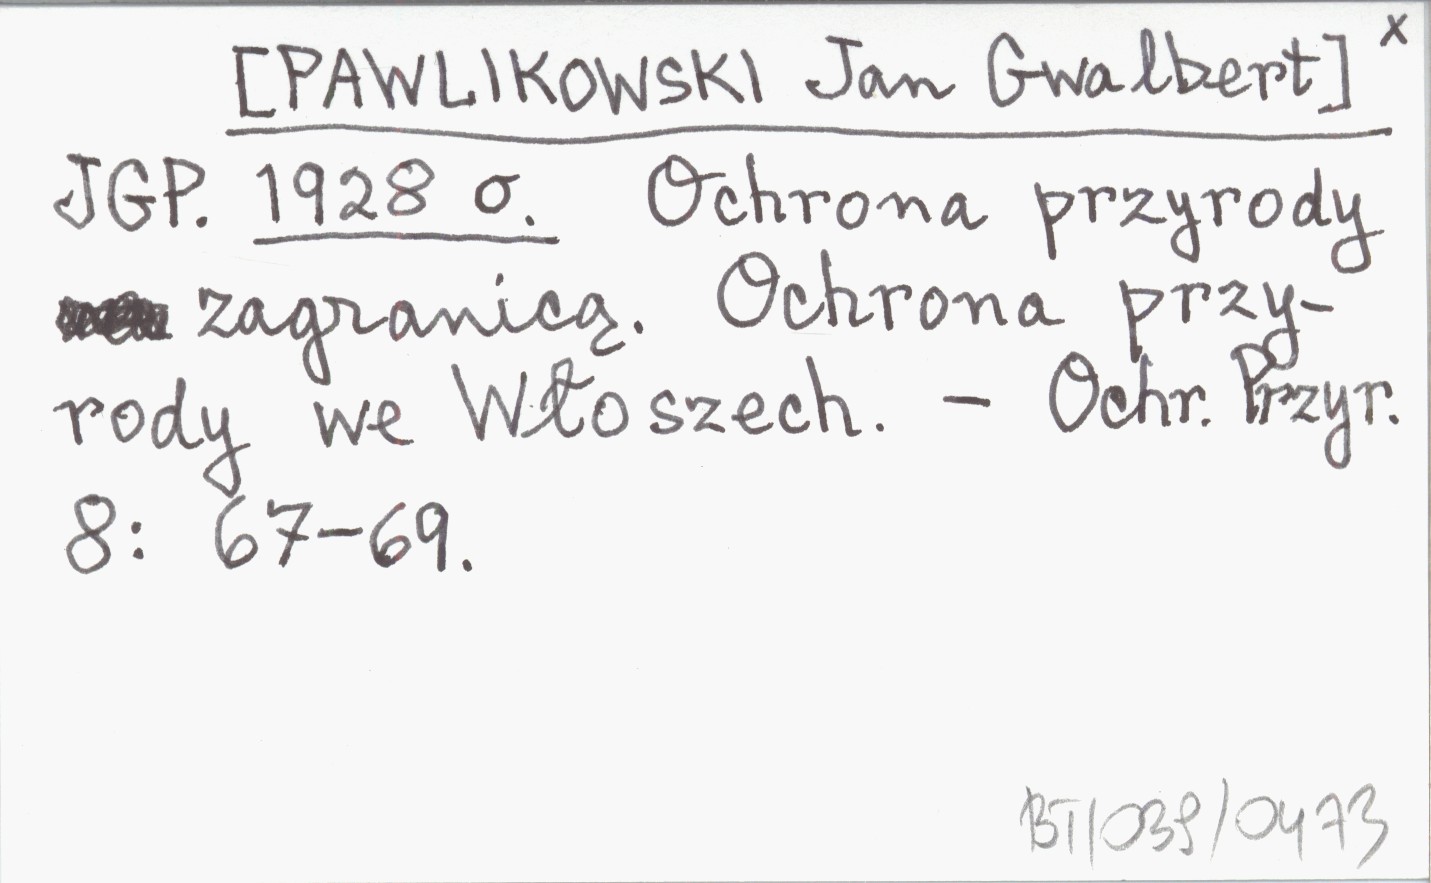 [PAWLIKOWSKI Jan Gwalbert] x
JGP. 1928 o. Ochrona przyrody
zagranicą. Ochrona przy-
rody we Włoszech. – Ochr. Przyr.
8: 67–69.
BT/039/0473